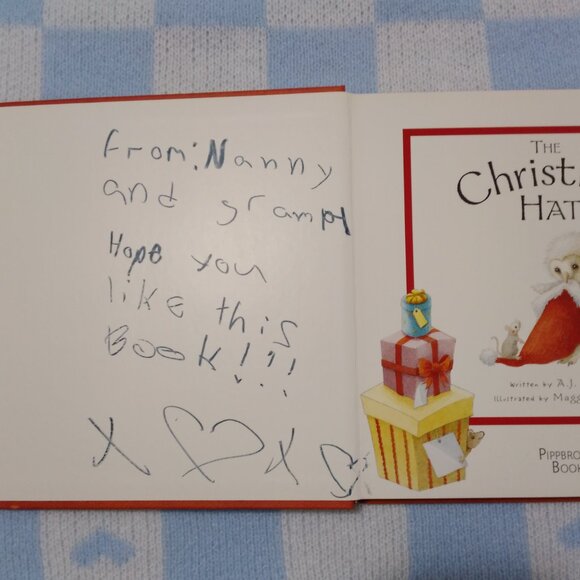 From: Nanny
and grampy
Hope you
like this
BOOK!!!
X ♡ X ♡
THE
Christ
HAT
WRITTEN BY A.J.
ILLUSTRATED BY MAGG
PIPPBRO
BOOK